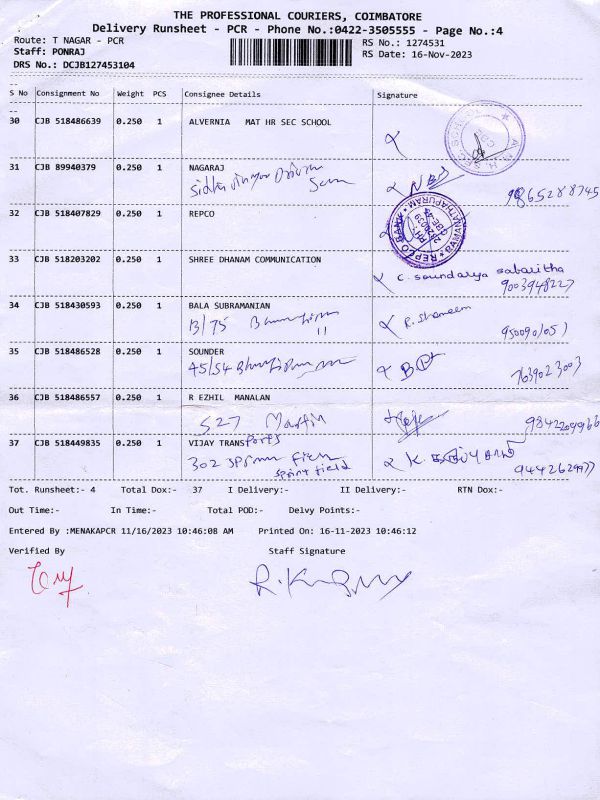 THE PROFESSIONAL COURIERS, COIMBATORE
Delivery Runsheet - PCR - Phone No.:0422-3505555 - Page No.:4
Route: T NAGAR - PCR RS No.: 1274531
Staff: PONRAJ RS Date: 16-Nov-2023
DRS No.: DCJB127453104
S No Consignment No Weight PCS Consignee Details Signature
30 CJB 518486639 0.250 1 ALVERNIA MAT HR SEC SCHOOL
31 CJB 89940379 0.250 1 NAGARAJ
9865288745
32 CJB 518407829 0.250 1 REPCO
REPCO BANK RAMANATHAPURAM
33 CJB 518203202 0.250 1 SHREE DHANAM COMMUNICATION
C. Soundarya Sabaritha
9003948227
34 CJB 518430593 0.250 1 BALA SUBRAMANIAN
13/75 R. Shameem
35 CJB 518486528 0.250 1 SOUNDER
45/54
7639023003
36 CJB 518486557 0.250 1 R EZHIL MANALAN
527 Martin
37 CJB 518449835 0.250 1 VIJAY TRANSPorts
302
Spring field
Tot. Runsheet:- 4 Total Dox:- 37 I Delivery:- II Delivery:- RTN Dox:-
Out Time:- In Time:- Total POD:- Delvy Points:-
Entered By :MENAKAPCR 11/16/2023 10:46:08 AM Printed On: 16-11-2023 10:46:12
Verified By Staff Signature